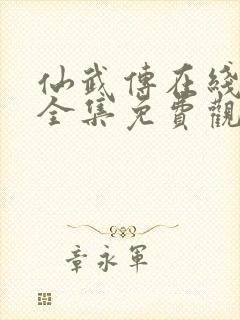 仙武傳在綫
全集免費觀
章永軍